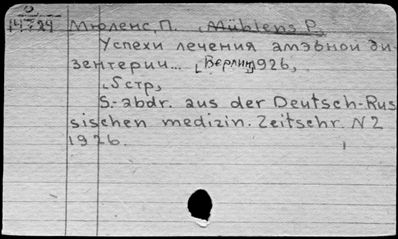 Мюленс, П. Mühlens P.
Успехи лечения амэбной ди-
зентерии... [Берлин] 1926,
5 стр,
S.-abdr. aus der Deutsch-Rus
sischen medizin. Zeitschr. N 2
1926.